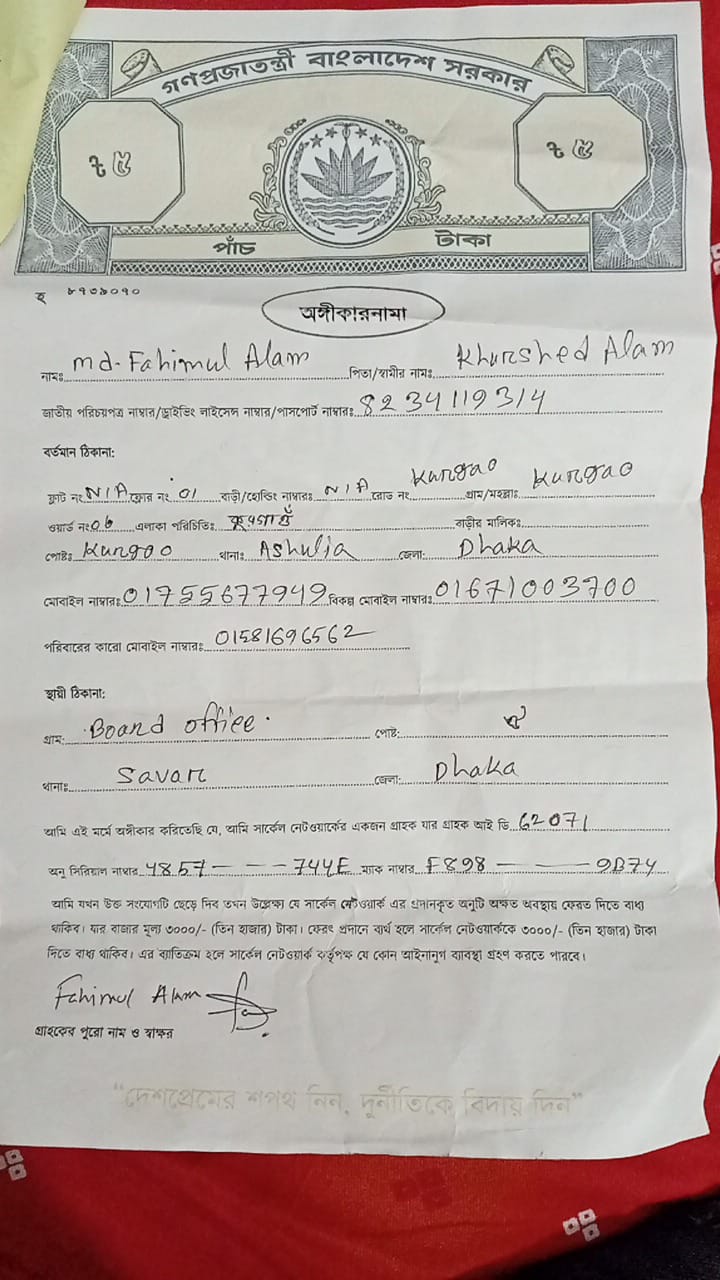 গণপ্রজাতন্ত্রী বাংলাদেশ সরকার
৳ ৫ ৳ ৫
পাঁচ টাকা
হ ৮৭৩৯০৭০
অঙ্গীকারনামা
নামঃ Md-Fahimul Alam পিতা/স্বামীর নামঃ Khurshed Alam
জাতীয় পরিচয়পত্র নাম্বার/ড্রাইভিং লাইসেন্স নাম্বার/পাসপোর্ট নাম্বারঃ 8234119314
বর্তমান ঠিকানা:
ফ্লাট নং N/A ফ্লোর নং 01 বাড়ী/হোল্ডিং নাম্বারঃ N/A রোড নং Kungao গ্রাম/মহল্লাঃ Kungao
ওয়ার্ড নং 06 এলাকা পরিচিতিঃ বাড়ীর মালিকঃ
পোষ্টঃ Kungao থানাঃ Ashulia জেলা: Dhaka
মোবাইল নাম্বারঃ 01755677949 বিকল্প মোবাইল নাম্বারঃ 01671003700
পরিবারের কারো মোবাইল নাম্বারঃ 01581696562
স্থায়ী ঠিকানা:
গ্রাম: Board office. পোষ্ট: ঐ
থানাঃ Savar জেলা: Dhaka
আমি এই মর্মে অঙ্গীকার করিতেছি যে, আমি সার্কেল নেটওয়ার্কের একজন গ্রাহক যার গ্রাহক আই ডি 62071
অনু সিরিয়াল নাম্বার 4857---744E ম্যাক নাম্বার F898 — — 9B74
আমি যখন উক্ত সংযোগটি ছেড়ে দিব তখন উল্লেক্ষ্য যে সার্কেল নেটওয়ার্ক এর প্রদানকৃত অনুটি অক্ষত অবস্থায় ফেরত দিতে বাধ্য
থাকিব। যার বাজার মূল্য ৩০০০/- (তিন হাজার) টাকা। ফেরৎ প্রদানে ব্যর্থ হলে সার্কেল নেটওয়ার্ককে ৩০০০/- (তিন হাজার) টাকা
দিতে বাধ্য থাকিব। এর ব্যতিক্রম হলে সার্কেল নেটওয়ার্ক কর্তৃপক্ষ যে কোন আইনানুগ ব্যাবস্থা গ্রহণ করতে পারবে।
Fahimul Alam
গ্রাহকের পুরো নাম ও স্বাক্ষর
"দেশপ্রেমের শপথ নিন, দুর্নীতিকে বিদায় দিন"